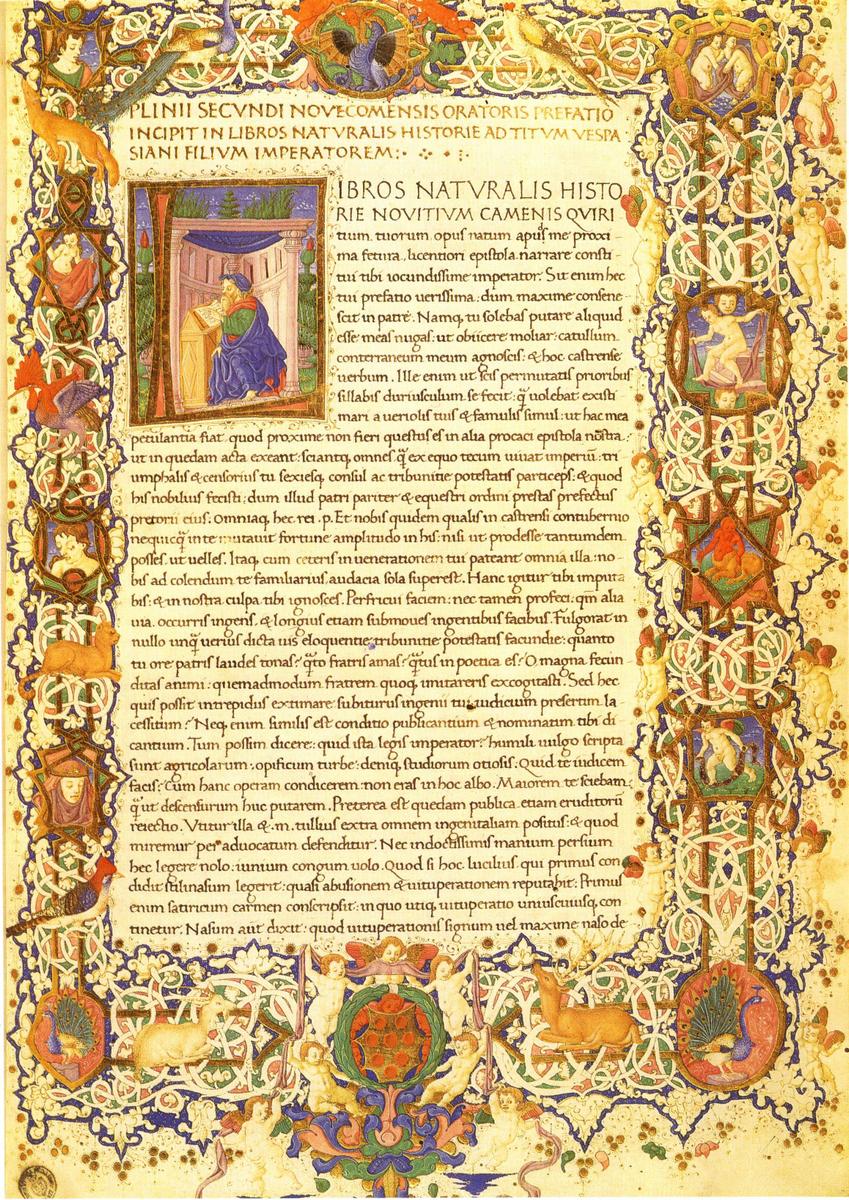 PLINII SECVNDI NOVECOMENSIS ORATORIS PREFATIO
INCIPIT IN LIBROS NATVRALIS HISTORIE AD TITVM VESPA
SIANI FILIVM IMPERATOREM:
LIBROS NATVRALIS HISTO
RIE NOVITIVM CAMENIS QVIRI
tium tuorum opus natum apud me proxi
ma fetura, licentiori epistola narrare consti
tui tibi iocundissime imperator. Sit enim hec
tui prefatio uerissima: dum maxime consene
scit in patre. Namq; tu solebas putare aliquid
esse meas nugas: ut obiicere moliar: catullum
conterraneum meum agnoscis: & hoc castrense
uerbum. Ille enim ut scis permutatis prioribus
sillabis duriusculum se fecit: q̄ uolebat existi
mari a ueriolis tuis & famulis simul: ut hac mea
petulantia fiat. quod proxime non fieri questus es in alia procaci epistola nostra:
ut in quedam acta exeant: sciantq; omnes q̄ ex equo tecum uiuat imperiū: tri
umphalis & censorius tu sexiesq; consul ac tribunitie potestatis particeps: & quod
his nobilius fecisti: dum illud patri pariter & equestri ordini prestas prefectus
pretorii eius. omniaq; hec rei .p. Et nobis quidem qualis in castrensi contubernio
nequicq̄ in te mutauit fortune amplitudo in his: nisi ut prodesse tantumdem
posses. ut uelles. Itaq; cum ceteris in uenerationem tui pateant omnia illa: no
bis ad colendum te familiarius audacia sola superest. Hanc igitur tibi imputa
bis: & in nostra culpa tibi ignosces. Perfricui faciem: nec tamen profeci: qm̄ alia
uia. occurris ingens. & longius etiam submoues ingentibus facibus. Fulgorat in
nullo unq̄ uerius dicta uis eloquentie: tribunitie potestatis facundie: quanto
tu ore patris laudes tonas? q̄to fratris amas? q̄tus in poetica es? O magna fecun
ditas animi: quemadmodum fratrem quoq; imitareris excogitasti. Sed hec
quis possit intrepidus extimare subiturus ingenii tui iudicium presertim la
cessitum? Neq; enim similis est conditio publicantium & nominatim tibi di
cantium. Tum possim dicere: quid ista legis imperator? humili uulgo scripta
sunt agricolarum: opificum turbe: deniq; studiorum otiosis: Quid te iudicem
facis? Cum hanc operam condicerem: non eras in hoc albo. Maiorem te sciebam:
q̄ ut descensurum huc putarem. Preterea est quedam publica etiam eruditorū
reiectio. Vtitur illa & .m. tullius extra omnem ingenii aliam positus: & quod
miremur per aduocatum defenditur. Nec indoctissimis manium persium
hec legere nolo: iunium congum uolo. Quod si hoc lucilius qui primus con
didit stili nasum legerit: quasi abusionem & uituperationem reputabit: Primus
enim satiricum carmen conscripsit: in quo utiq; uituperatio uniuscuiusq; con
tinetur. Nasum aūt dixit: quod uituperationis signum uel maxime naso de